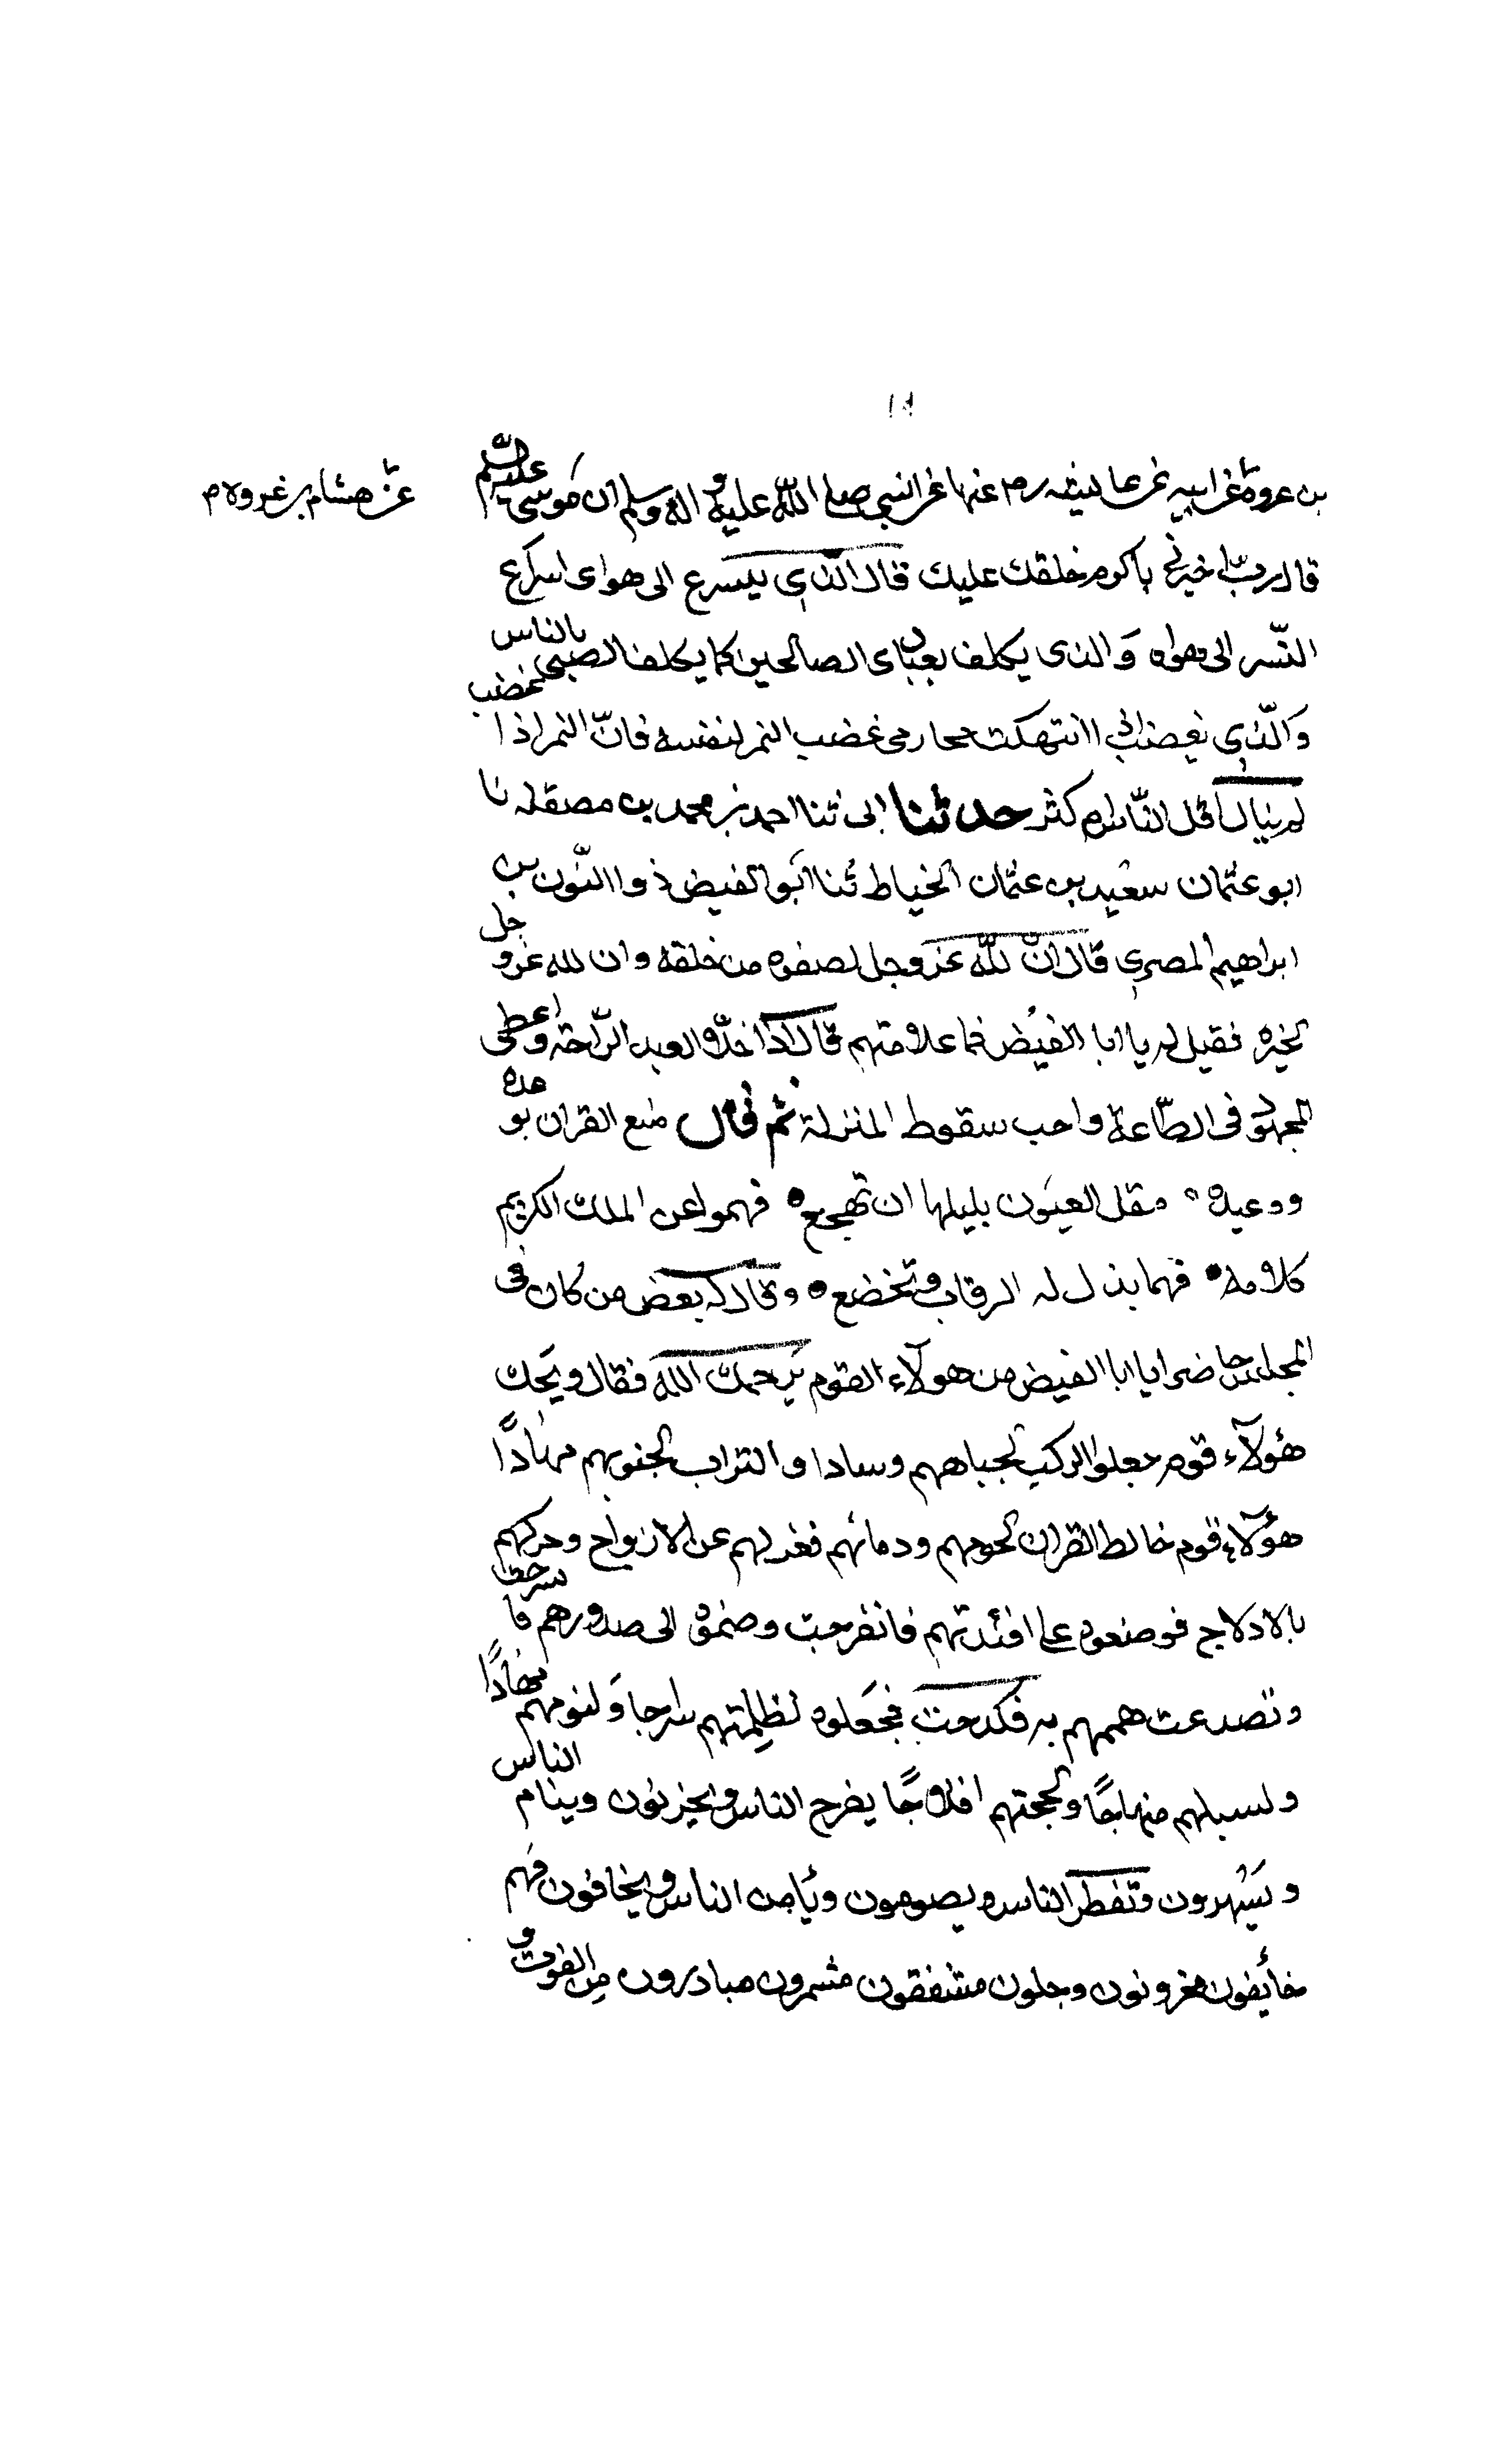 ١٩
بن عروة عن ابيه عن عايشه رم عنها عن النبي صلى الله عليه و اله وسلم ان موسى عليه السلم
عن هشام بن عروه م
قال يرب اخبرني باكرم خلقك عليك قال الذي يسرع الى هواى اسراع
النسر الى هواه والذى يكلف بعبادى الصالحين كما يكلف الصبى بالناس
والذي يغضب اذا انتهكت محارمى غضب النمر لنفسه فان النمر اذا غضب
لم يبال اقل الناس ام كثر حدثنا ابى ثنا احمد بن محمد بن مصقله ثنا
ابو عثمان سعيد بن عثمان الخياط ثنا ابو الفيض ذوا النون بن
ابراهيم المصري قال ان لله عز وجل لصفوه من خلقه وان لله عز و جل
لخيره فقيل له يا ابا الفيض فما علامتهم قال اذا خلا العبد الراحة و اعطى
المجهود فى الطاعة واحب سقوط المنزلة ثم قال منع القران بوعده
ووعيده مقل العيون بليلها ان تهجع فهموا عن الملك الكريم
كلامه فهما بذل له الرقاب وتخضع وقال له بعض من كان فى
المجلس حاضرا يا ابا الفيض من هولآء القوم يرحمك الله فقال ويحك
هؤلآء قوم جعلوا الركب لجباههم وسادا والتراب لجنوبهم مهادًا
هؤلآء قوم خالط القران لحومهم ودمائهم فعزلهم عن الازواج وحركهم
بالادلاج فوضعوه على افئدتهم فانفرجت وضموه الى صدورهم فانشرحت
وتصدعت هممهم به فكدحت فجعلوه لظلمتهم سراجا ولنومهم مهادًا
ولسبيلهم منهاجًا ولحجتهم افلاجًا يفرح الناس ويحزنون وينام الناس
ويسهرون وتفطر الناس ويصومون ويأمن الناس ويخافون فهم
خائفون محزونون وجلون مشفقون مشمرون مبادرون من الفوت و